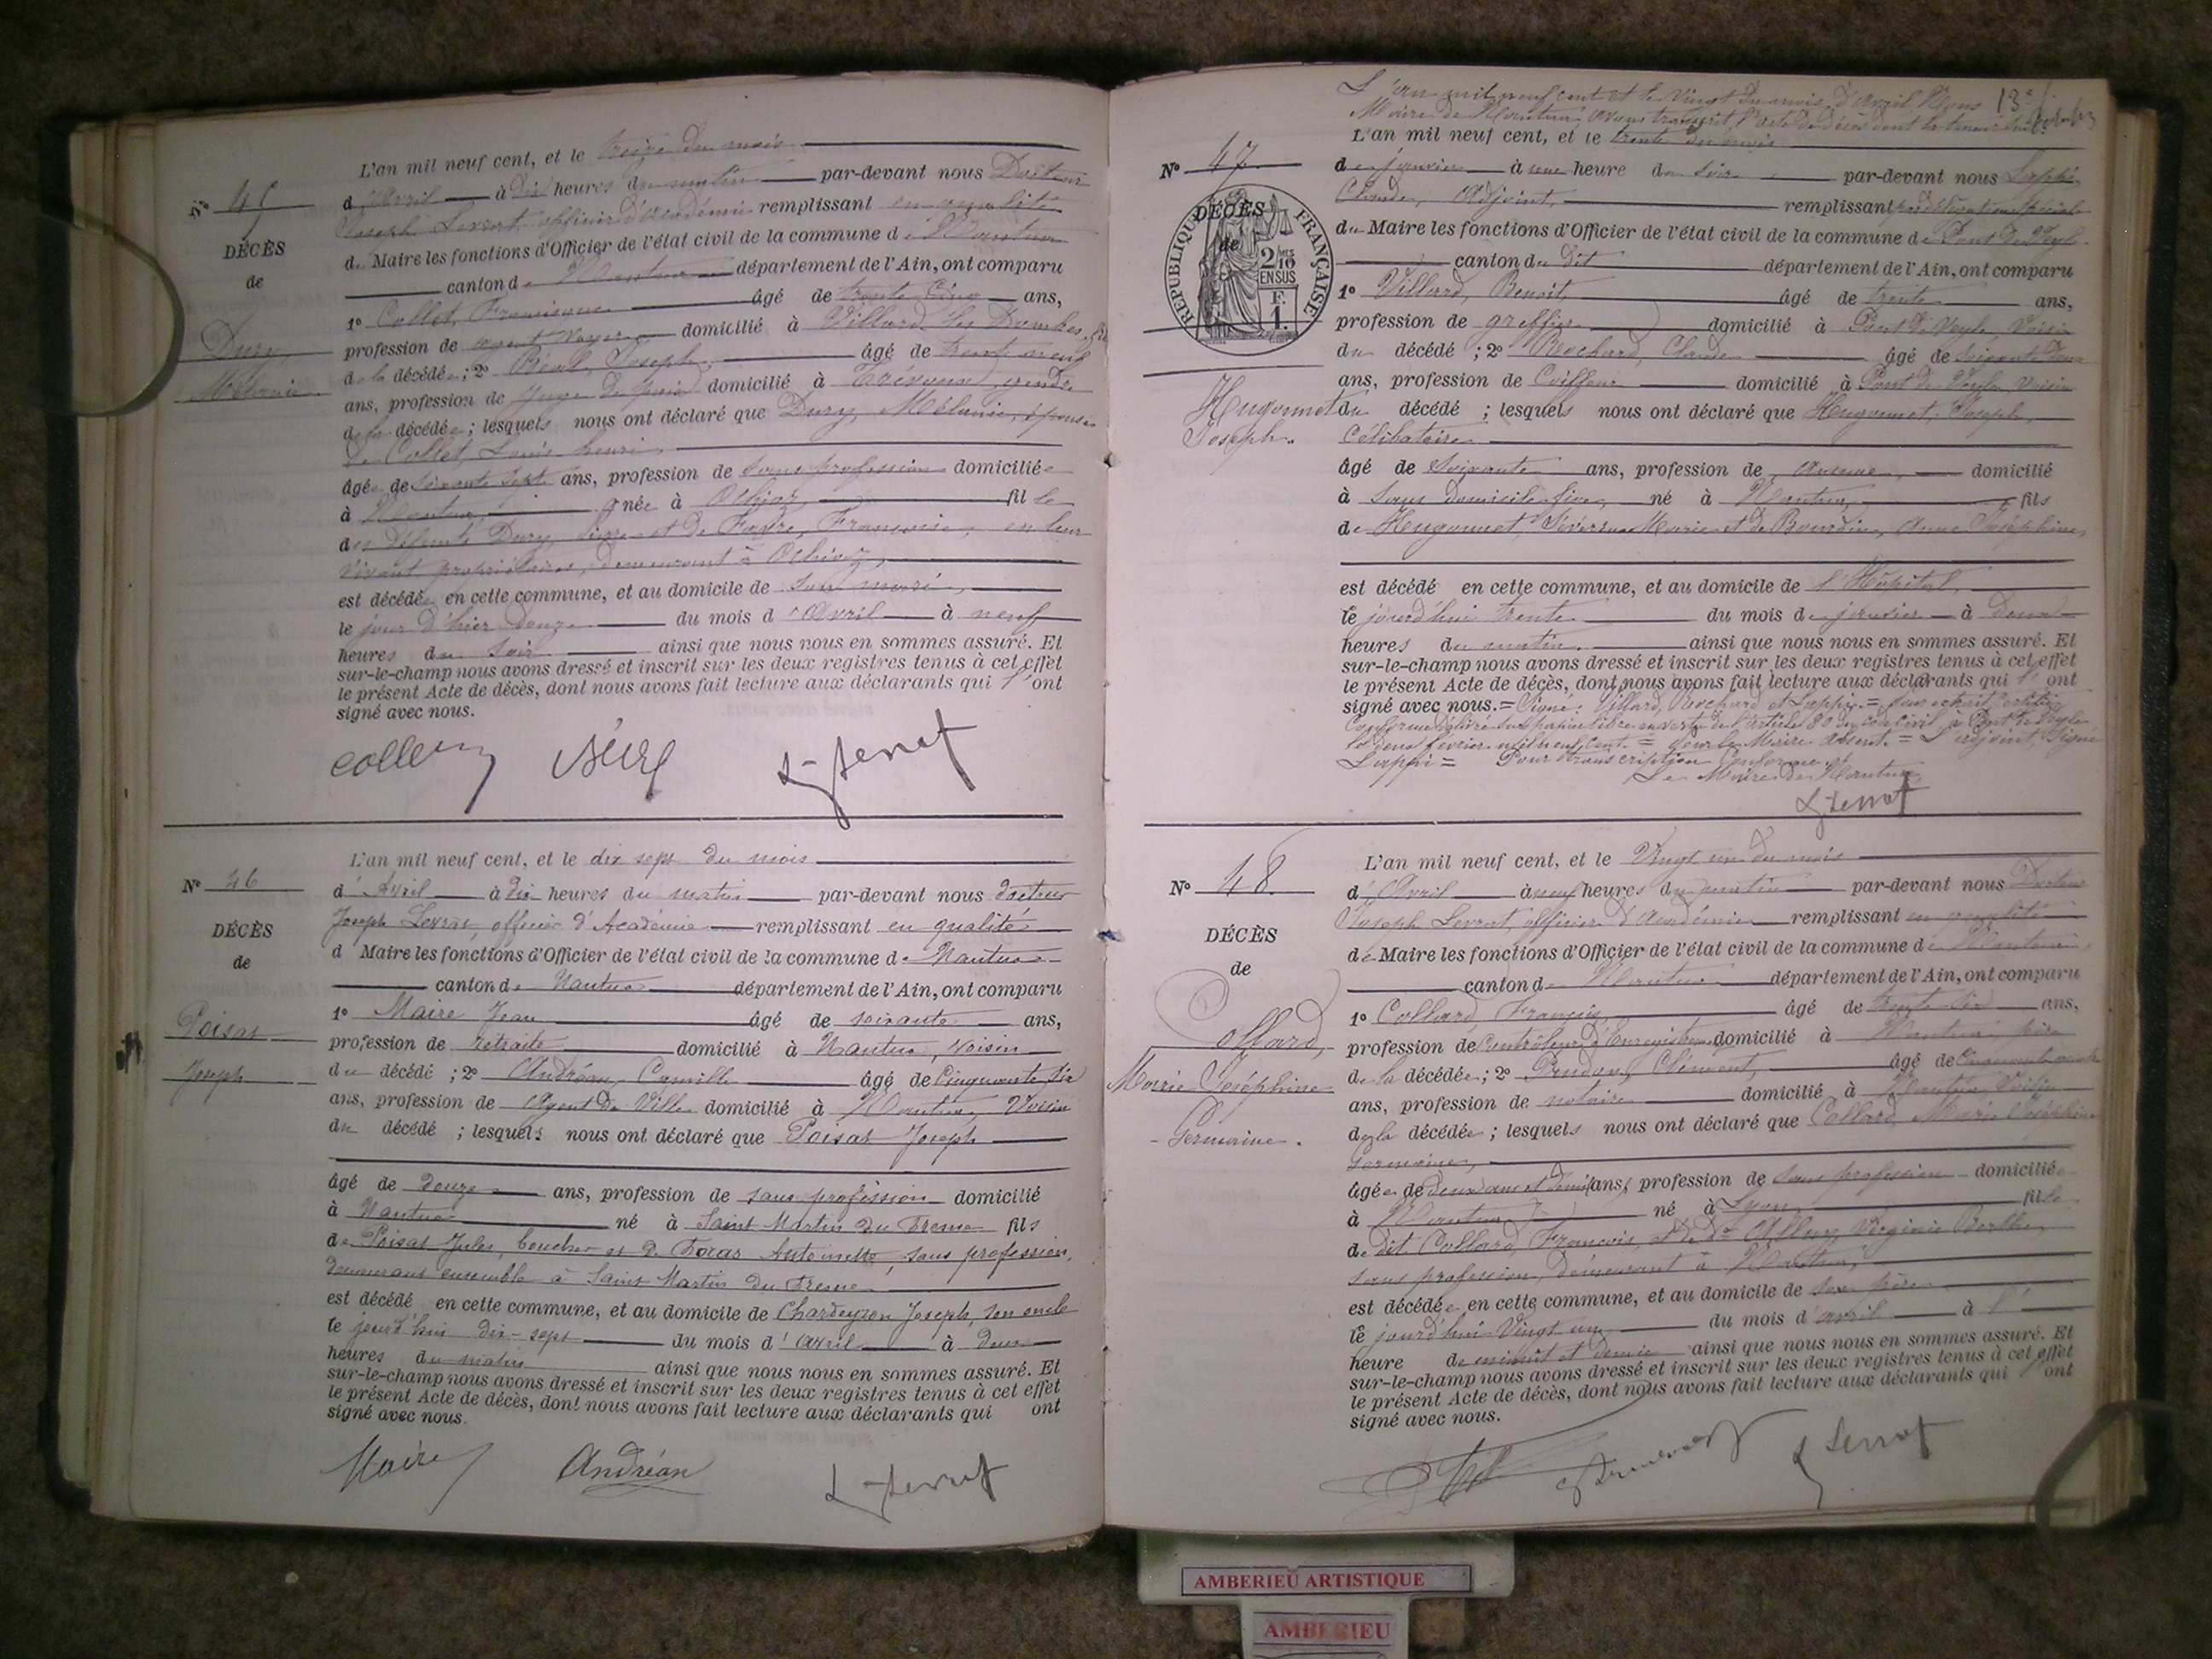 N° 45
DÉCÈS
de
Dury
Mélanie
L'an mil neuf cent, et le treize du mois
d'Avril à dix heures du matin par-devant nous Docteur
Joseph Levrat officier d'académie remplissant en qualité
de Maire les fonctions d'Officier de l'état civil de la commune de Nantua
canton de Nantua département de l'Ain, ont comparu
1° Collet, Francisque âgé de trente cinq ans,
profession de agent voyer domicilié à Villard les Dombes, fils
de la décédée; 2° Joseph, âgé de trente neuf
ans, profession de juge de paix domicilié à Trévoux, gendre
de la décédée; lesquels nous ont déclaré que Dury, Mélanie, épouse
de Collet, Louis henri
âgée de soixante sept ans, profession de sans profession domiciliée
à Nantua, née à Ochiaz, fille
des défunts Dury, et de Favre, Françoise, en leur
vivant propriétaires, demeurant à Ochiaz,
est décédée en cette commune, et au domicile de son mari,
le jour d'hier douze du mois d'Avril à neuf
heures du soir ainsi que nous nous en sommes assuré. Et
sur-le-champ nous avons dressé et inscrit sur les deux registres tenus à cet effet
le présent Acte de décès, dont nous avons fait lecture aux déclarants qui l'ont
signé avec nous.
N° 46
DÉCÈS
de
Poisat
Joseph
L'an mil neuf cent, et le dix sept du mois
d'Avril à dix heures du matin par-devant nous docteur
Joseph Levrat, officier d'Académie remplissant en qualité
d Maire les fonctions d'Officier de l'état civil de la commune de Nantua
canton de Nantua département de l'Ain, ont comparu
1° Maire Jean âgé de soixante ans,
profession de retraité domicilié à Nantua, voisin
du décédé ; 2° Andréan, Camille âgé de Cinquante six
ans, profession de Agent de Ville domicilié à Nantua, Voisin
du décédé ; lesquels nous ont déclaré que Poisat Joseph
âgé de douze ans, profession de sans profession domicilié
à Nantua né à Saint Martin du Fresne fils
de Poisat Jules, boucher et de Foras Antoinette, sans profession,
demeurant ensemble à Saint Martin du Fresne
est décédé en cette commune, et au domicile de Chardeyron Joseph, son oncle
le jourd'hui dix-sept du mois d'avril à deux
heures du matin ainsi que nous nous en sommes assuré. Et
sur-le-champ nous avons dressé et inscrit sur les deux registres tenus à cet effet
le présent Acte de décès, dont nous avons fait lecture aux déclarants qui ont
signé avec nous.
Maire Andréan
L'an mil neuf cent et le Vingt du mois d'avril Nous 13e
Maire de Nantua, avons transcrit l'acte de décès dont la teneur suit:
N° 47
DÉCÈS
de
RÉPUBLIQUE FRANÇAISE
2/10 EN SUS
F. 1.
Hugonnet
Joseph.
L'an mil neuf cent, et le trente du mois
de janvier à une heure du soir par-devant nous Lappi,
Claude, Adjoint, remplissant par délégation spéciale
du Maire les fonctions d'Officier de l'état civil de la commune de Pont de Veyle
canton du dit département de l'Ain, ont comparu
1° Villard, Benoit, âgé de trente ans,
profession de greffier domicilié à Pont de Veyle, Voisin
du décédé ; 2° Claude âgé de soixante deux
ans, profession de Coiffeur domicilié à Pont de Veyle, Voisin
du décédé ; lesquels nous ont déclaré que Hugonnet, Joseph,
Célibataire
âgé de soixante ans, profession de aucune, domicilié
à sans domicile fixe, né à Nantua, fils
de Hugonnet, Marie et de Bourdin, Anne Joséphine,
est décédé en cette commune, et au domicile de l'Hôpital,
le jourd'hui trente du mois de janvier à deux
heures du matin. ainsi que nous nous en sommes assuré. Et
sur-le-champ nous avons dressé et inscrit sur les deux registres tenus à cet effet
le présent Acte de décès, dont nous avons fait lecture aux déclarants qui l'ont
signé avec nous. = Signé: Villard, et Lappi. = Pour extrait certifié
Conforme délivré sur papier libre en vertu de l'article 80 du code civil, à Pont de Veyle
le deux février mil neuf cent. = pour le Maire absent. = L'adjoint, Signé
Lappi = Pour transcription Conforme
Le Maire de Nantua
N° 48.
DÉCÈS
de
Collard,
Marie Joséphine
Germaine.
L'an mil neuf cent, et le Vingt un du mois
d'Avril à neuf heures du matin par-devant nous Docteur
Joseph Levrat, officier d'académie remplissant en qualité
de Maire les fonctions d'Officier de l'état civil de la commune de Nantua,
canton de Nantua département de l'Ain, ont comparu
1° Collard, François, âgé de trente six ans,
profession de Contrôleur d'Enregistrement domicilié à Nantua père
de la décédée; 2° Clément, âgé de
ans, profession de notaire domicilié à Nantua, Voisin
de la décédée; lesquels nous ont déclaré que Collard, Marie Joséphine
Germaine,
âgée de deux ans et demi, ans, profession de sans profession domiciliée
à Nantua né à Lyon fille
de dit Collard, François, & de Virginie Berthe,
sans profession, demeurant à Nantua,
est décédée en cette commune, et au domicile de son père
le jourd'hui Vingt un du mois d'avril à l'
heure de minuit et demie ainsi que nous nous en sommes assuré. Et
sur-le-champ nous avons dressé et inscrit sur les deux registres tenus à cet effet
le présent Acte de décès, dont nous avons fait lecture aux déclarants qui l'ont
signé avec nous.
AMBERIEU ARTISTIQUE
AMBERIEU